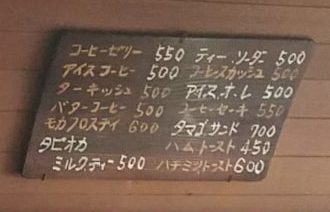 コーヒーゼリー 550
アイスコーヒー 500
ターキッシュ 500
バターコーヒー 500
モカフロスティ 600
タピオカ
ミルクティー 500
ティーソーダー 500
コーヒースカッシュ 500
アイス・オ・レ 500
コーヒーセーキ 550
タマゴサンド 700
ハムトースト 450
ハチミツトースト 600